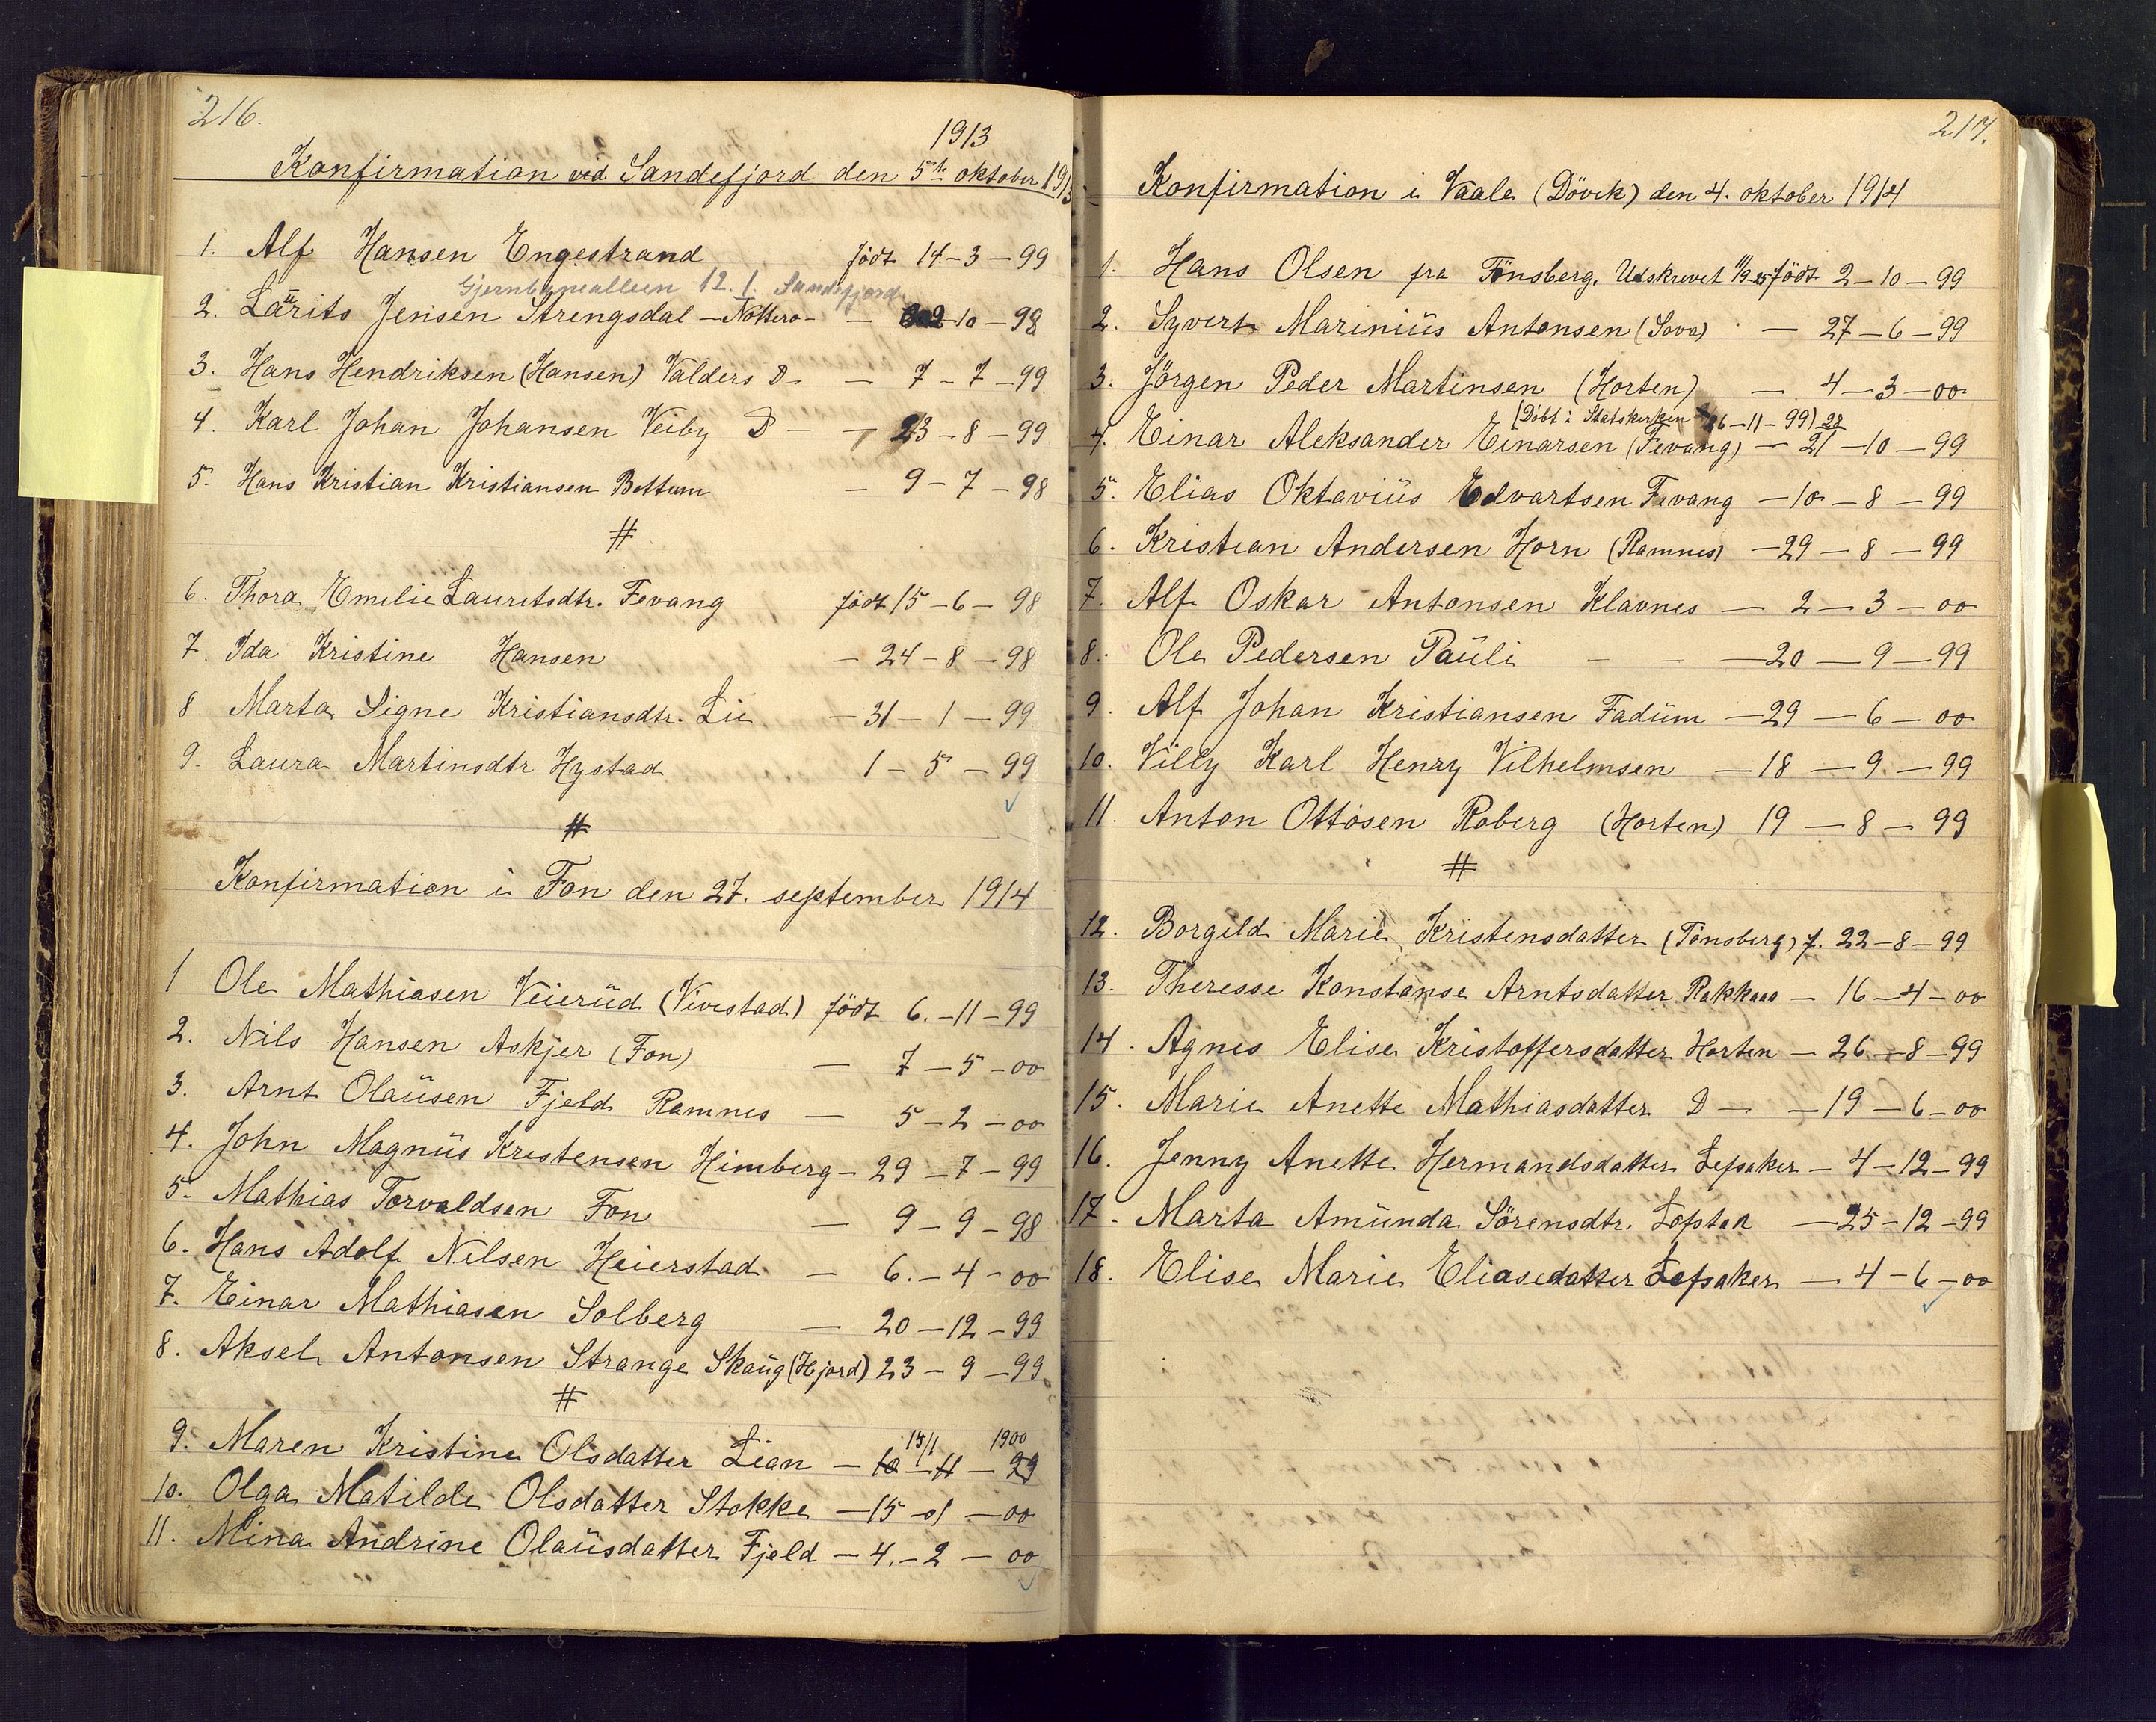 216.
1913
Konfirmation ved Sandefjord den 5te oktober 1913
1. Alf Hansen Engestrand födt 14-3-99
12. 1. Sandefjord
2. Laurits Jensen Strengsdal - Nötterö - - 2-10-98
3. Hans Hendriksen (Hansen) Valders D- - 7-7-99
4. Karl Johan Johansen Veiby D- - 23-8-99
5. Hans Kristian Kristiansen Bettum - 9-7-98
#
6. Thora Emilie Lauritsdtr. Fevang födt 15-6-98
7. Ida Kristine Hansen - 24-8-98
8 Marta Signe Kristiansdtr. Lie - 31-1-99
9. Laura Martinsdtr Hystad 1-5-99
#
Konfirmation i Fon den 27. september 1914
1 Ole Mathiasen Veierüd (Vivestad) födt 6.-11-99
2. Nils Hansen Askjer (Fon) - 7-5-00
3. Arnt Olaüsen Fjeld Ramnes - 5-2-00
4. John Magnüs Kristensen Himberg - 29-7-99
5. Mathias Torvaldsen Fon - 9-9-98
6. Hans Adolf Nilsen Heierstad - 6.-4-00
7. Einar Mathiasen Solberg - 20-12-99
8. Aksel Antonsen Strange Skaüg (Hjord) 23-9-99
#
15/1 1900
9. Maren Kristine Olsdatter Lian - 10-11-99
10. Olga Matilde Olsdatter Stokke - 15-1-00
11. Mina Andrine Olaüsdatter Fjeld - 4.-2-00
217.
Konfirmation i Vaale (Dövik) den 4. oktober 1914
1. Hans Olsen fra Tönsberg. Udskrevet födt 2-10-99
2. Syvert Mariniüs Antonsen (Sova) - 27-6-99
3. Jörgen Peder Martinsen (Horten) - 4-3-00
(Döbt i Statskirken 26-11-99) 28
4. Einar Aleksander Einarsen (Fevang) - 21-10-99
5. Elias Oktaviüs Edvartsen Fevang - 10-8-99
6. Kristian Andersen Horn (Ramnes) - 29-8-99
7. Alf Oskar Antonsen Klavnes - 2-3-00
8. Ole Pedersen Paüli - - - 20-9-99
9. Alf Johan Kristiansen Fadüm - 29-6-00
10. Villy Karl Henry Vilhelmsen - 18-9-99
11. Anton Ottosen Roberg (Horten) 19-8-99
#
12. Borgild Marie Kristensdatter (Tönsberg) f. 22-8-99
13. Theresse Konstanse Arntsdatter Rakkaas - 16-4-00
14. Agnes Elise Kristoffersdatter Horten - 26-8-99
15. Marie Anette Mathiasdatter D- - 19-6-00
16. Jenny Anette Hermandsdatter Lefsaker - 4-12-99
17. Marta Amünda Sörensdtr. Lofstad - 25-12-99
18. Elise Marie Eliasedatter Lefsaker - 4-6-00